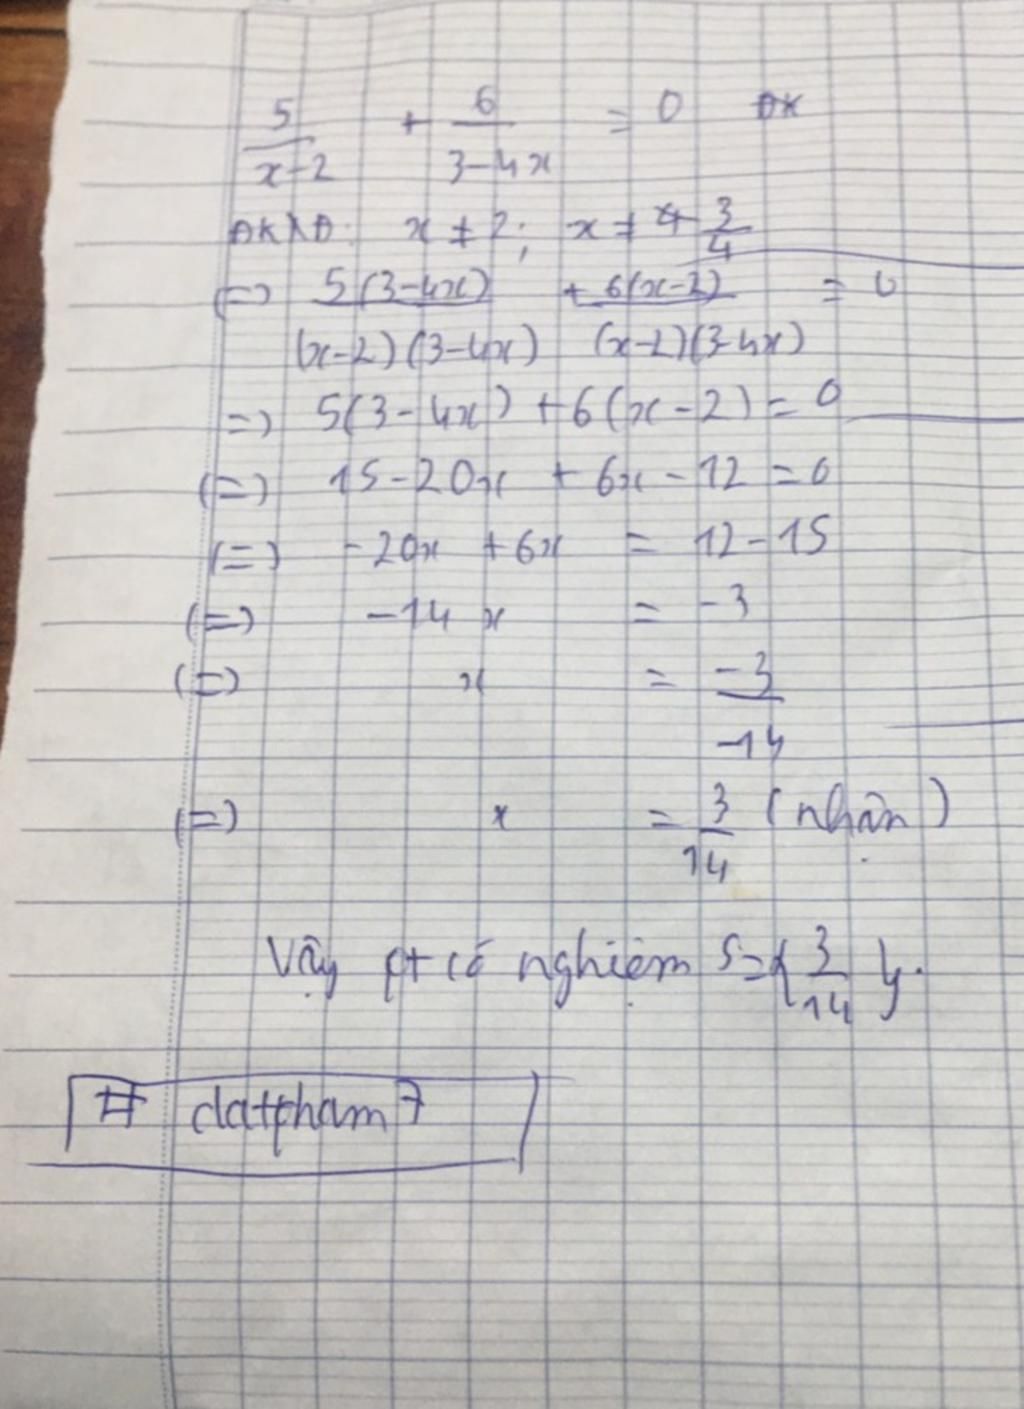 5/(x-2) + 6/(3-4x) = 0 ĐK
ĐKXĐ: x ≠ 2; x ≠ 3/4
(=) 5(3-4x)/(x-2)(3-4x) + 6(x-2)/(x-2)(3-4x) = 0
=) 5(3-4x) + 6(x-2) = 0
(=) 15-20x + 6x - 12 = 0
(=) -20x + 6x = 12-15
(=) -14x = -3
(=) x = -3/-14
(=) x = 3/14 (nhận)
Vậy pt có nghiệm S={3/14}.
# datpham7